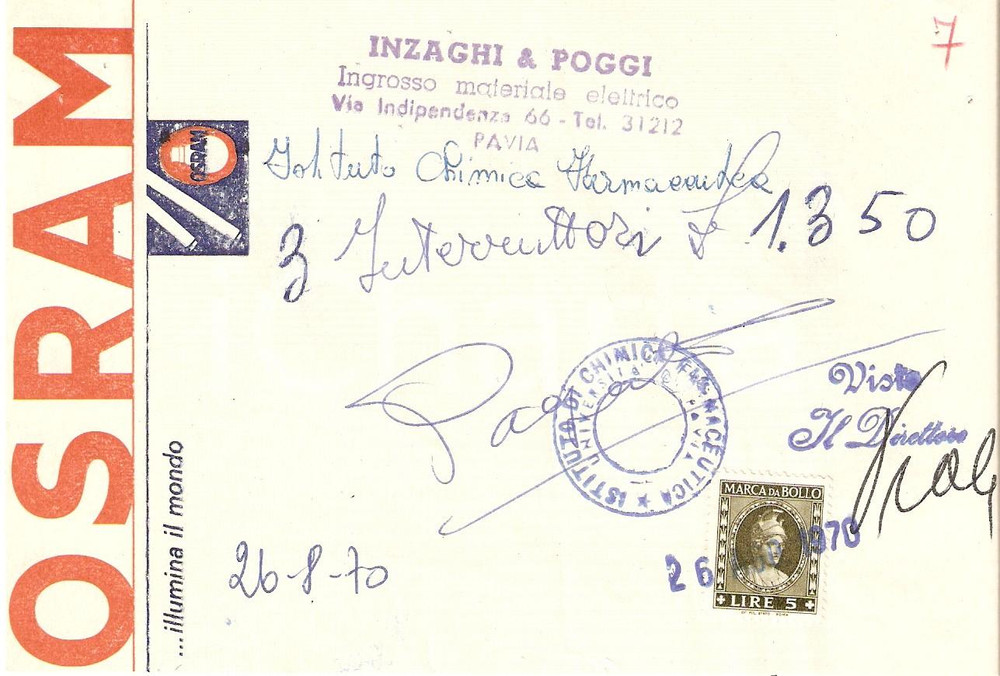 OSRAM
...illumina il mondo
OSRAM
7
INZAGHI & POGGI
Ingrosso materiale elettrico
Via Indipendenza 66 - Tel. 31212
PAVIA
Istituto Chimica Farmaceutica
3 Interruttori £ 1.350
Pagato
ISTITUTO DI CHIMICA FARMACEUTICA
UNIVERSITA DI PAVIA
Visto
Il Direttore
MARCA DA BOLLO
LIRE 5
26 1970
26-8-70